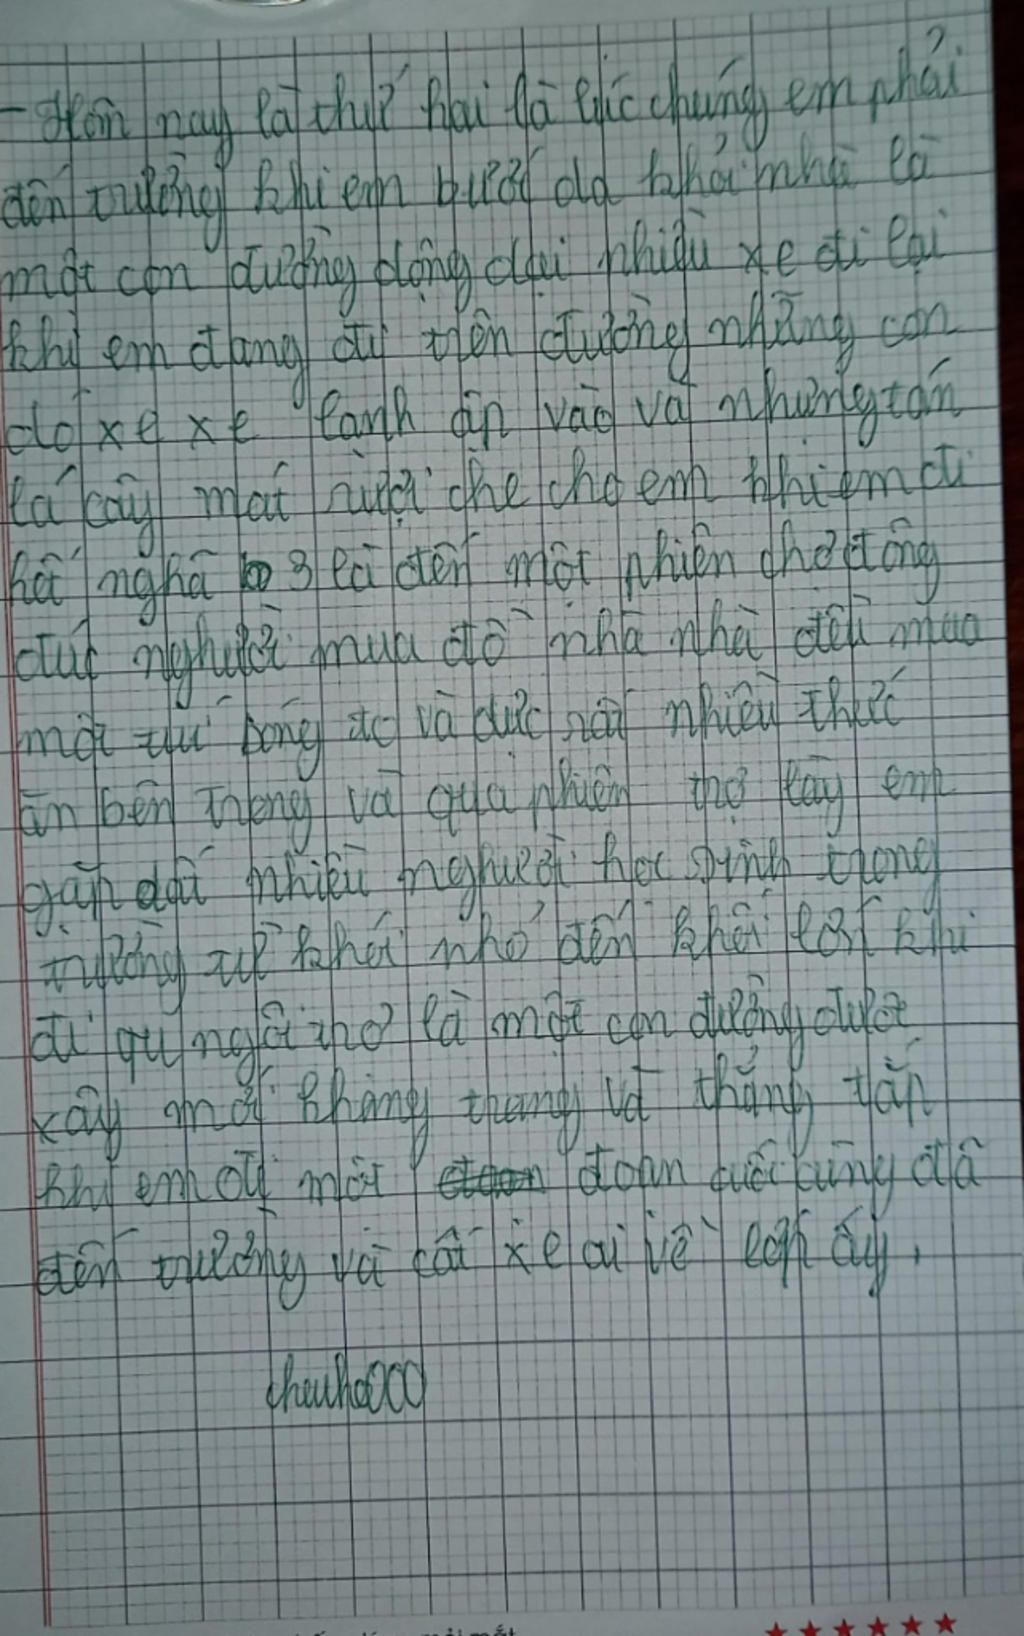 - Hôm nay là thứ hai là lúc chúng em phải
đến trường khi em bước da khỏi nhà là
một con đường dông dúi nhiều xe đi lại
khi em đang đi trên đường những con
dó xe xe lạnh ạp vào và nhưng tán
lá cây mát rượi che cho em khi em đi
hết ngã 3 là đến một phiên chợ đông
đúc người mua đồ nhà nhà đều mua
một túi bóng to và dực rất nhiều thức
ăn bên trong và qua phiên chợ lày em
gặp dất nhiều người học sinh trong
trường từ khối nhỏ đến khối lớn khi
đi qu ngôi chợ là một con đường được
xây mới khang thang và thẳng tắp
khi em đi một đoạn cuối cùng đã
đến trường và cất xe ai về lớp ấy.